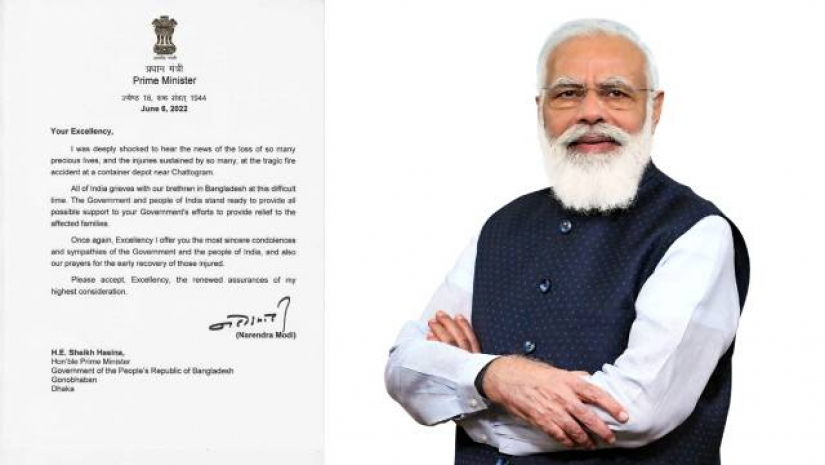 प्रधान मंत्री
Prime Minister
ज्येष्ठ 16, शक संवत् 1944
June 6, 2022
Your Excellency,
I was deeply shocked to hear the news of the loss of so many
precious lives, and the injuries sustained by so many, at the tragic fire
accident at a container depot near Chattogram.
All of India grieves with our brethren in Bangladesh at this difficult
time. The Government and people of India stand ready to provide all
possible support to your Government's efforts to provide relief to the
affected families.
Once again, Excellency I offer you the most sincere condolences
and sympathies of the Government and the people of India, and also
our prayers for the early recovery of those injured.
Please accept, Excellency, the renewed assurances of my
highest consideration.
(Narendra Modi)
H.E. Sheikh Hasina,
Hon'ble Prime Minister
Government of the People's Republic of Bangladesh
Gonobhaban
Dhaka